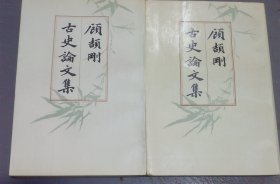 顧頡剛
古史論文集
顧頡剛
古史論文集